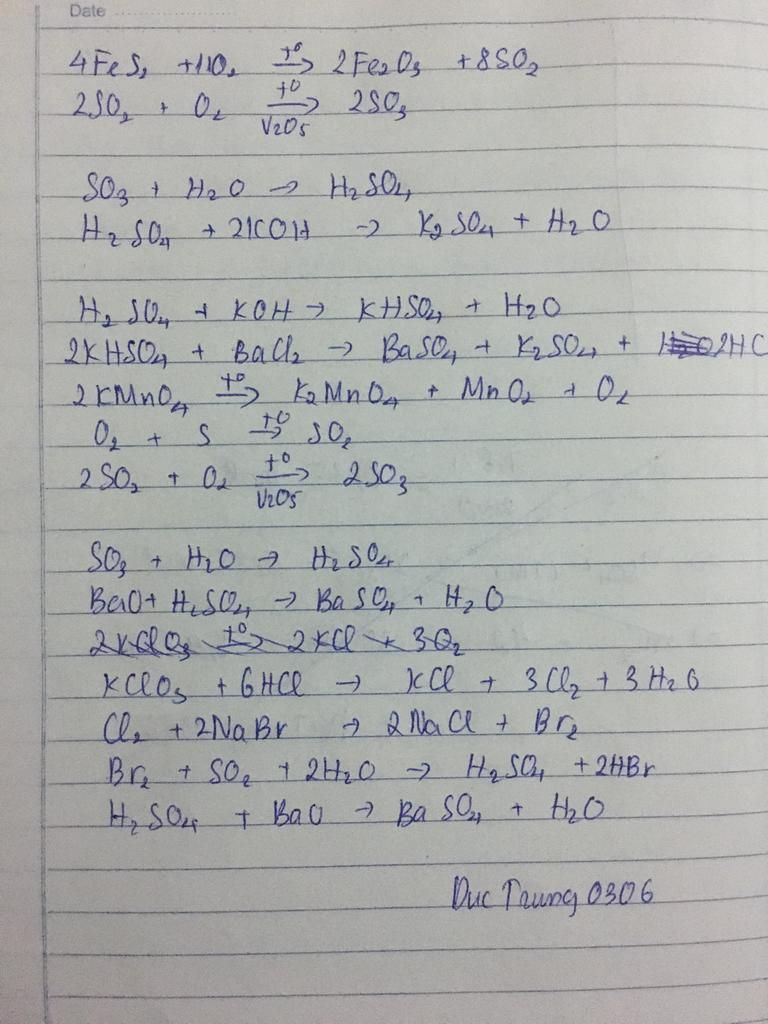 Date
4FeS₂ + 11O₂ →(t⁰) 2Fe₂O₃ + 8SO₂
2SO₂ + O₂ →(t⁰, V₂O₅) 2SO₃
SO₃ + H₂O → H₂SO₄
H₂SO₄ + 2KOH → K₂SO₄ + H₂O
H₂SO₄ + KOH → KHSO₄ + H₂O
2KHSO₄ + BaCl₂ → BaSO₄ + K₂SO₄ + 2HC
2KMnO₄ →(t⁰) K₂MnO₄ + MnO₂ + O₂
O₂ + S →(t⁰) SO₂
2SO₂ + O₂ →(t⁰, V₂O₅) 2SO₃
SO₃ + H₂O → H₂SO₄
BaO + H₂SO₄ → BaSO₄ + H₂O
2KClO₃ →(t⁰) 2KCl + 3O₂
KClO₃ + 6HCl → KCl + 3Cl₂ + 3H₂O
Cl₂ + 2NaBr → 2NaCl + Br₂
Br₂ + SO₂ + 2H₂O → H₂SO₄ + 2HBr
H₂SO₄ + BaO → BaSO₄ + H₂O
Duc Trung 0306